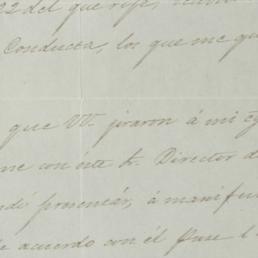 22 del que rije,
Conducta, los que me qu
que VV. jiraron á mi
me con este Sr. Director d
presentár, á manifes
de acuerdo con él Puse l